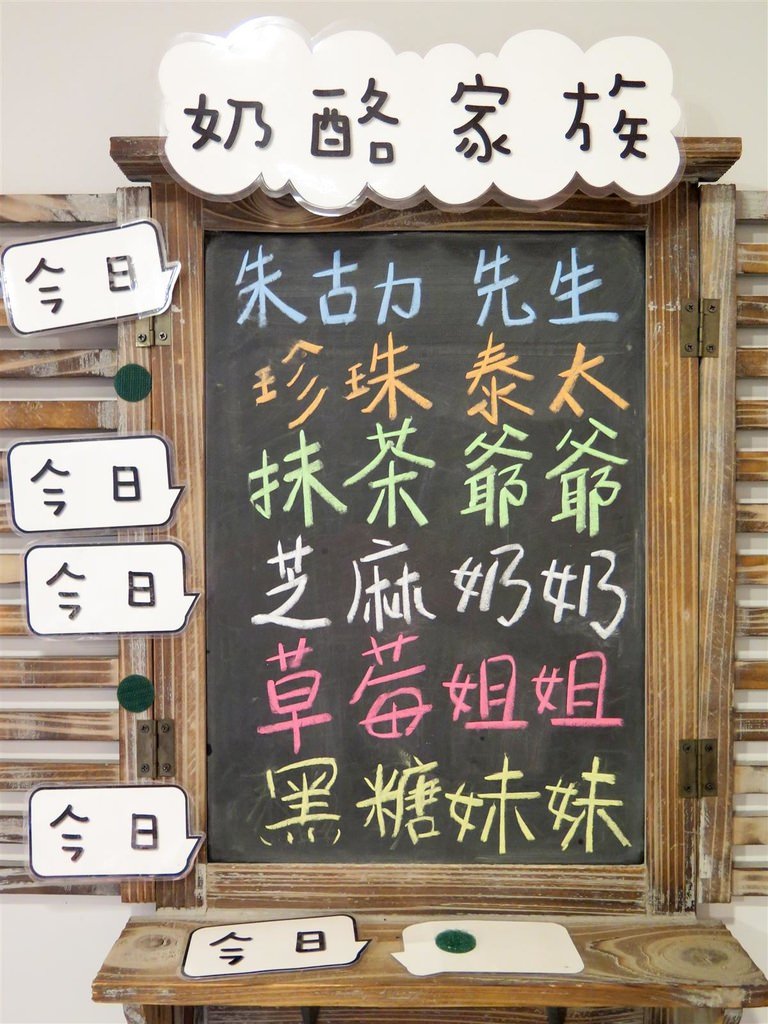 奶酪家族
今日
朱古力 先生
珍珠 泰太
今日
抹茶 爺爺
今日
芝麻 奶奶
草莓 姐姐
今日
黑糖 妹妹
今日